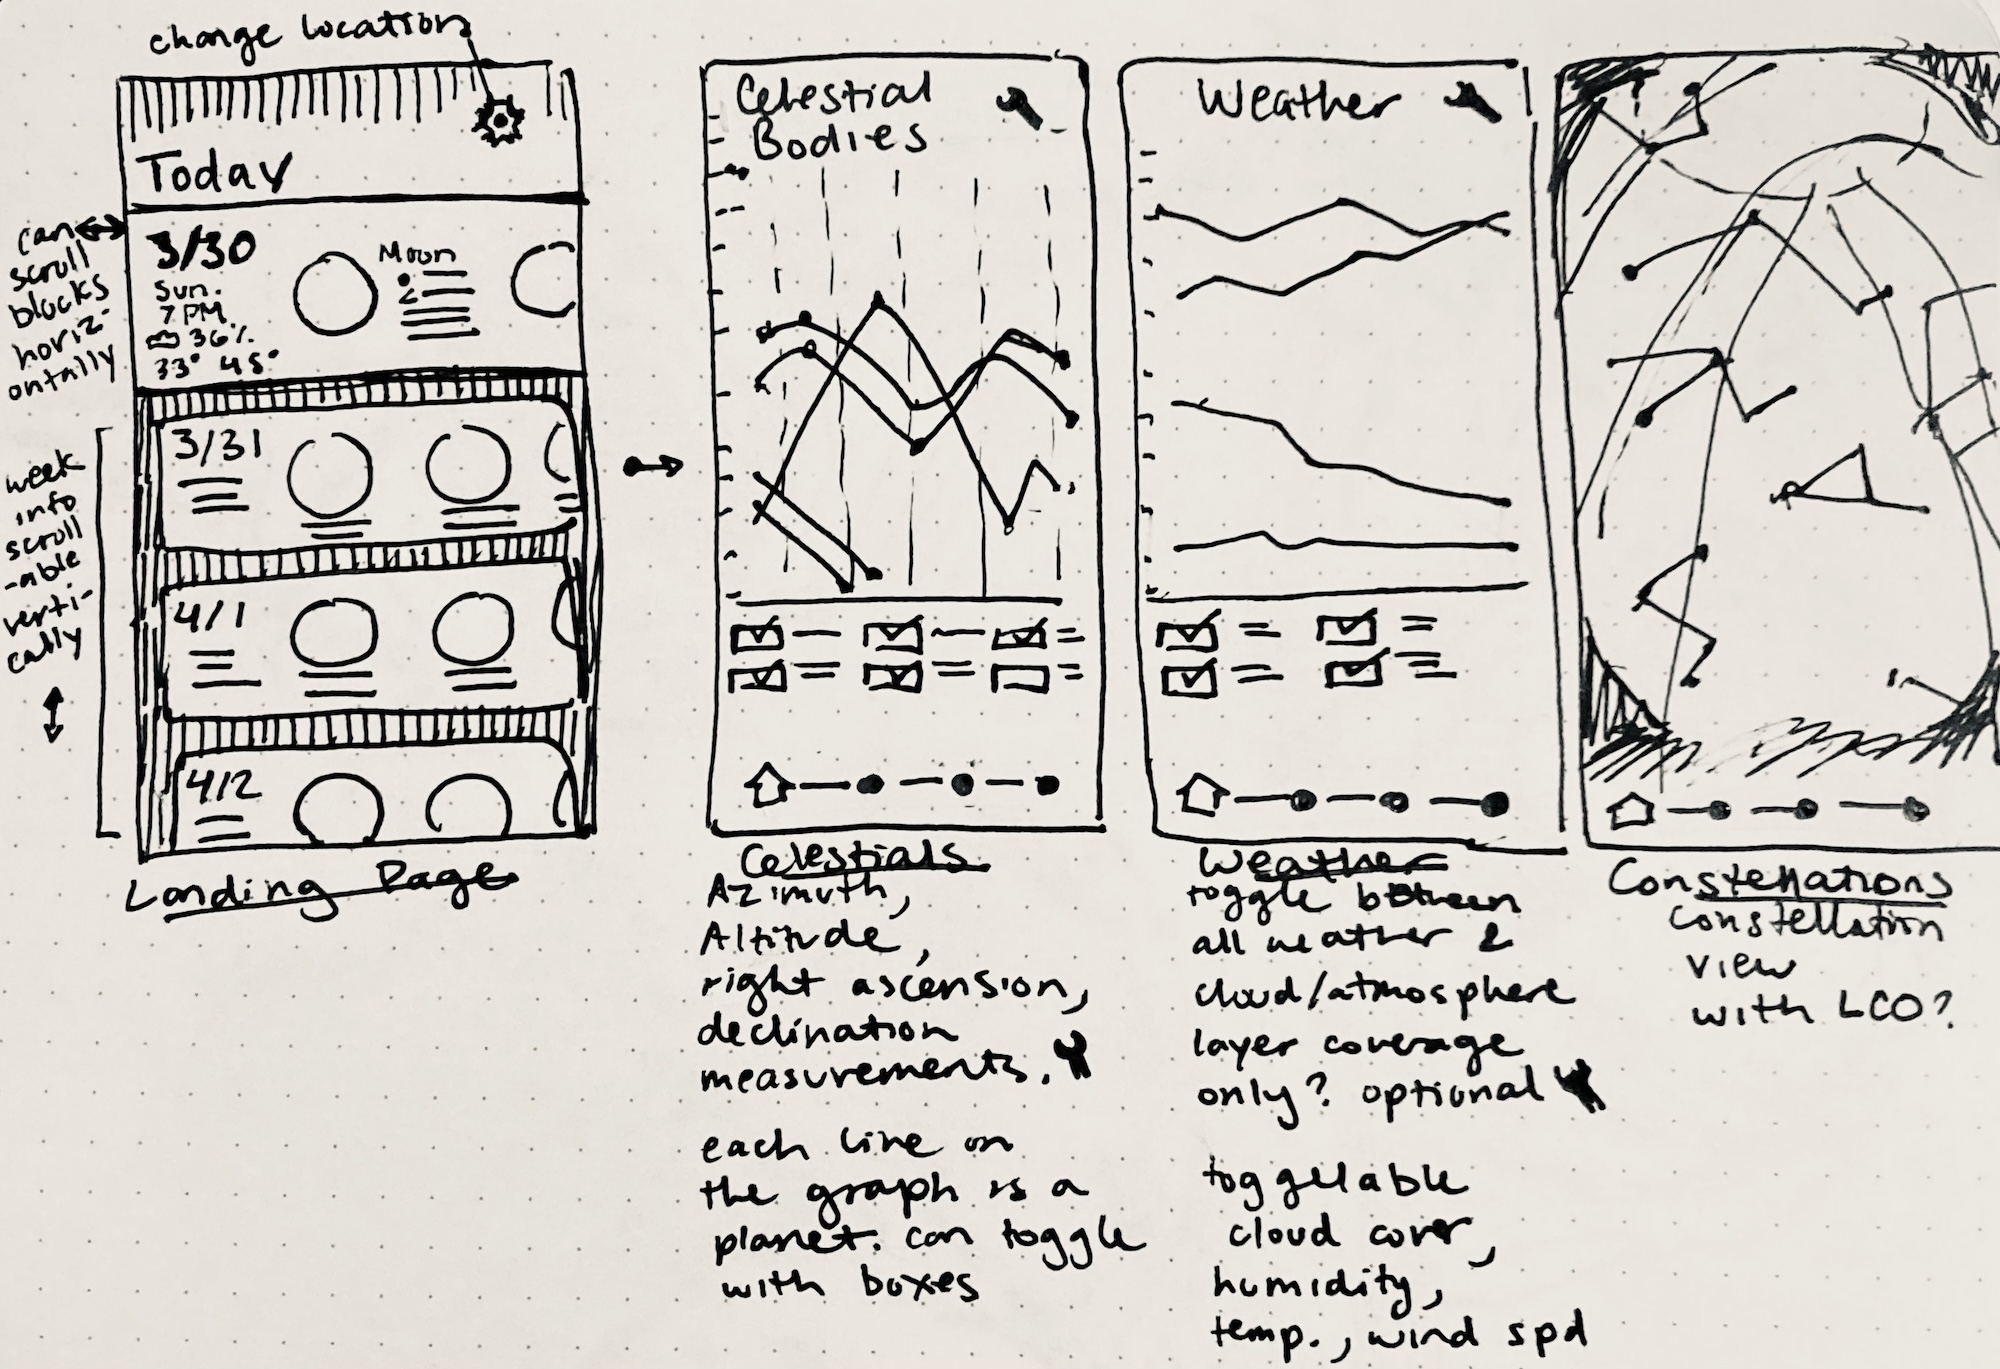 change location
Today
can
scroll
blocks
horiz-
ontally
3/30
Sun.
7 PM
36%
33° 45°
Moon
3/31
4/1
4/2
week
info
scroll
-able
verti-
cally
Landing Page
Celestial
Bodies
Celestials
Azimuth,
Altitude,
right ascension,
declination
measurements.
each line on
the graph is a
planet. can toggle
with boxes
Weather
Weather
toggle between
all weather &
cloud/atmosphere
layer coverage
only? optional
toggelable
cloud cover,
humidity,
temp., wind spd
Constellations
constellation
view
with LCO?